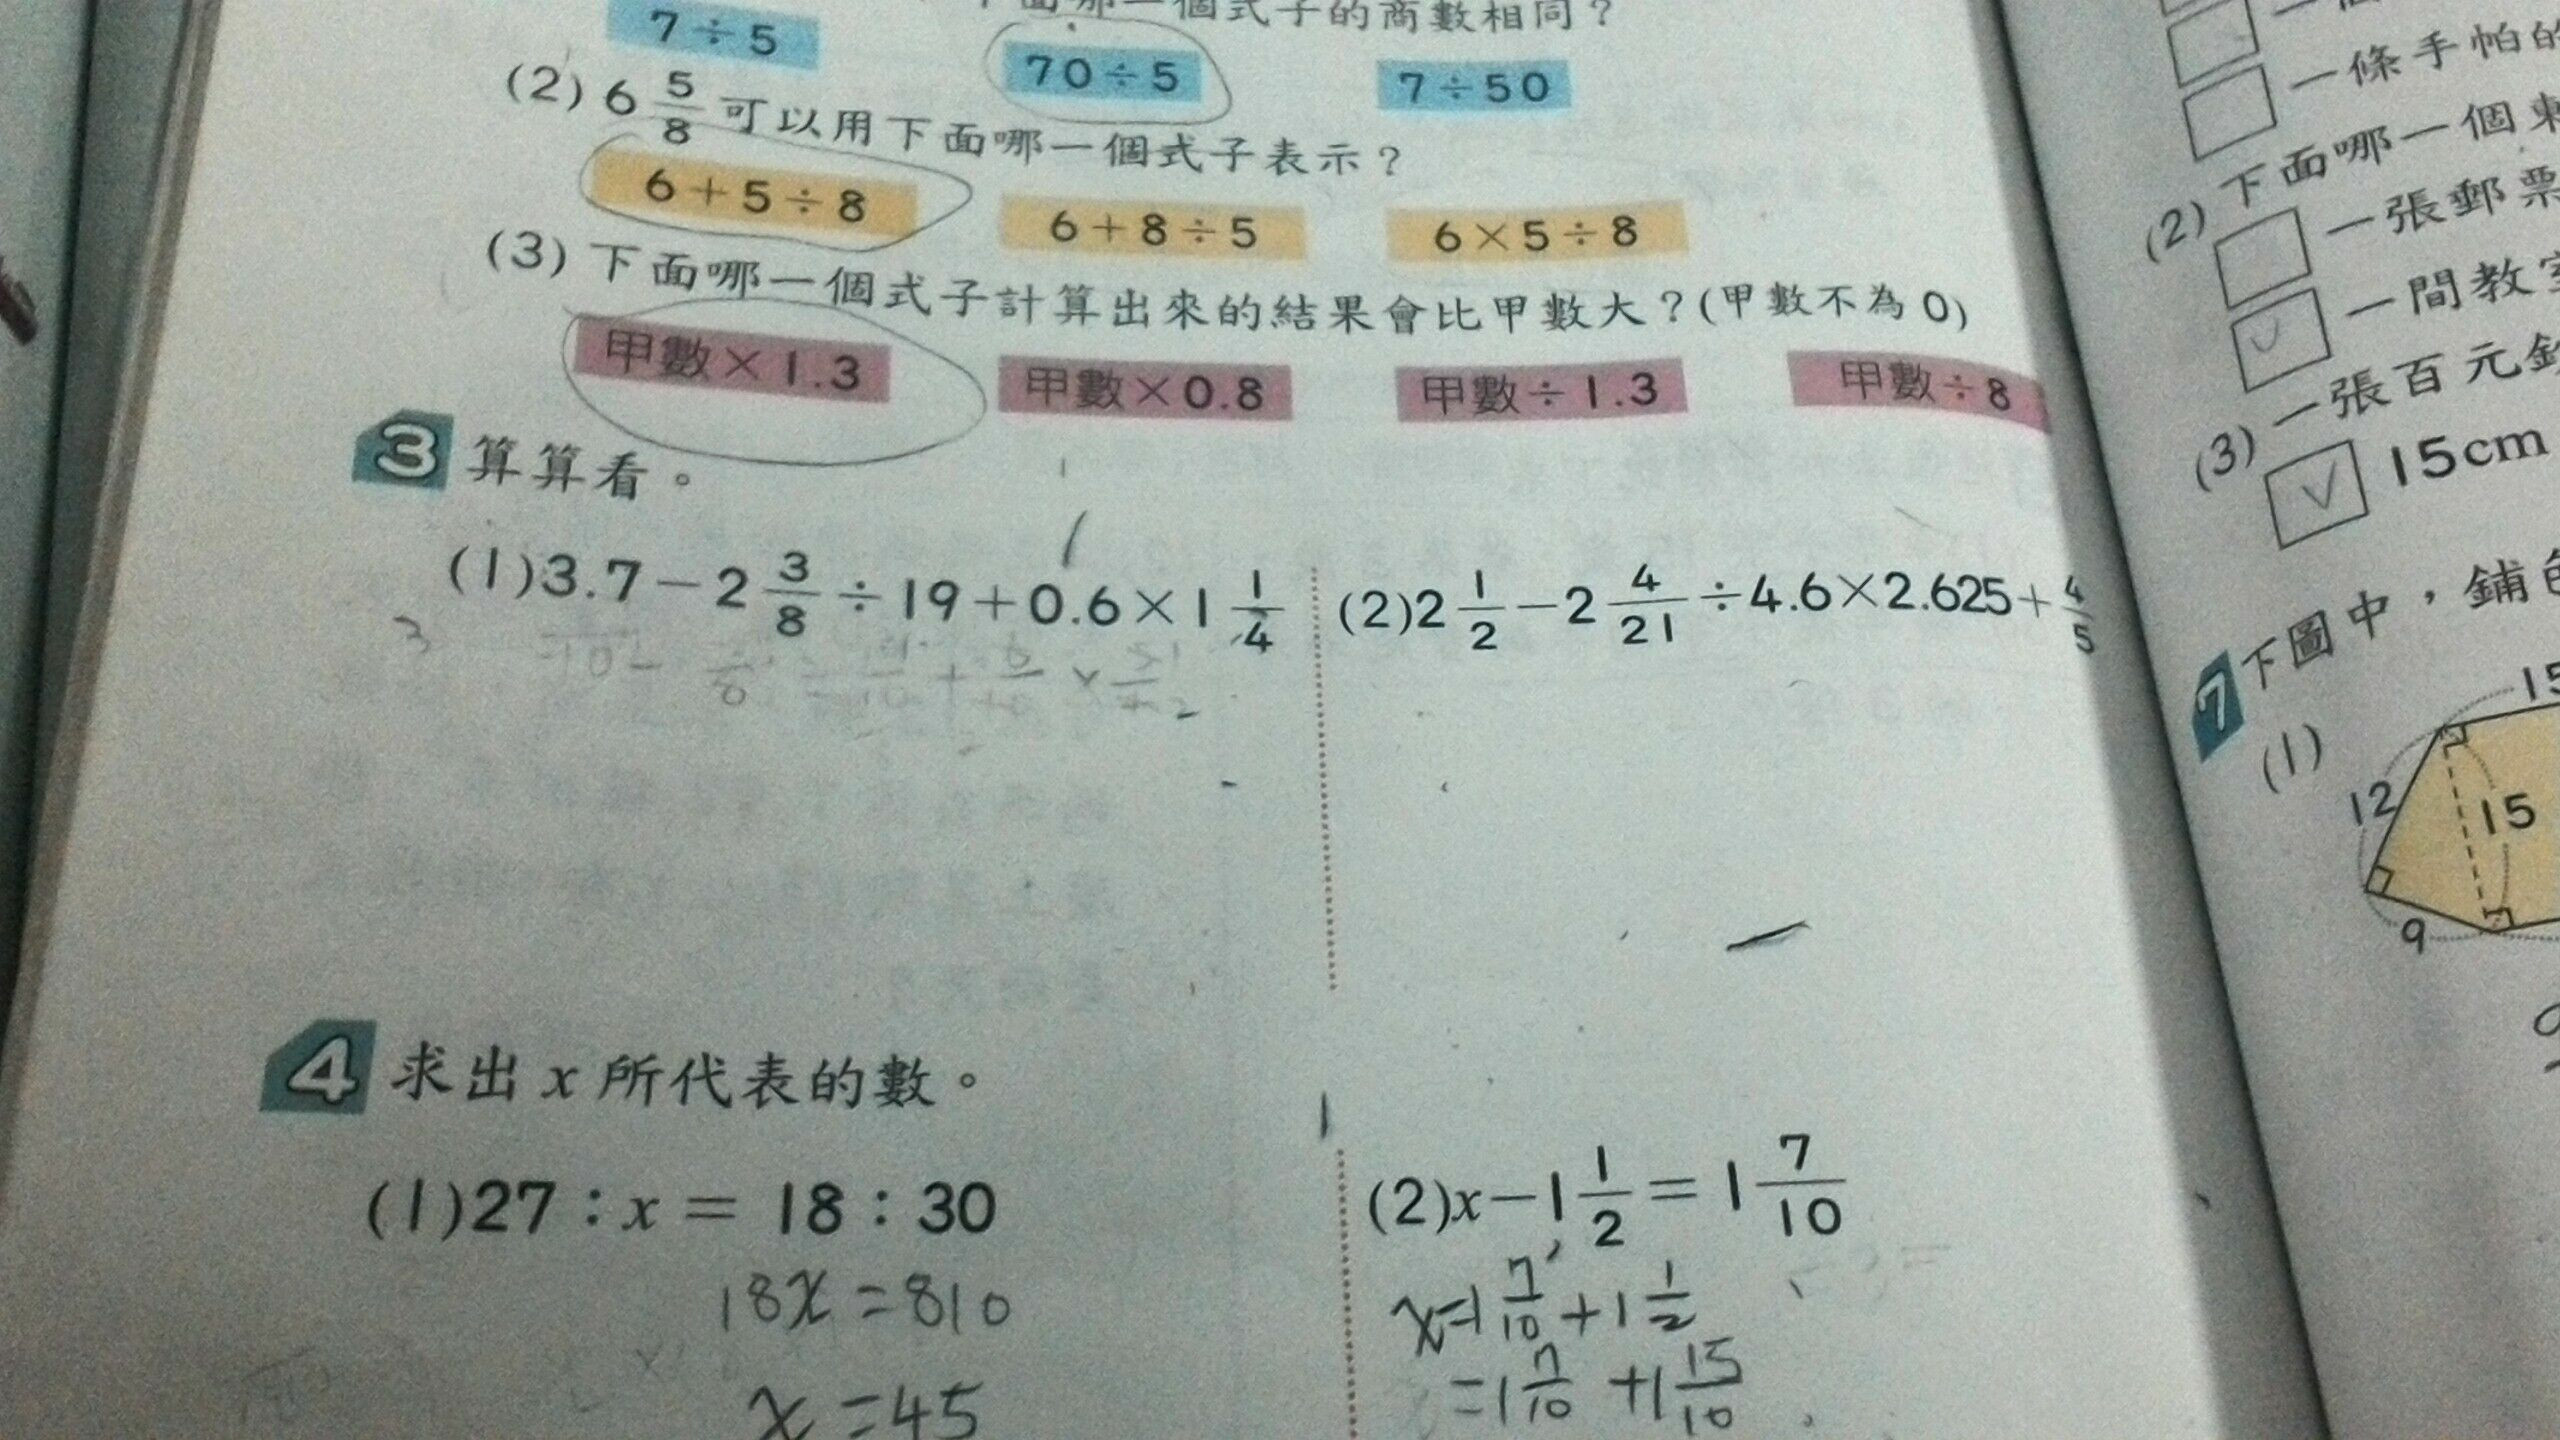 下面哪一個式子的商數相同？
7÷5 70÷5 7÷50
(2) 6 5/8 可以用下面哪一個式子表示？
6+5÷8 6+8÷5 6×5÷8
(3) 下面哪一個式子計算出來的結果會比甲數大？(甲數不為0)
甲數×1.3 甲數×0.8 甲數÷1.3 甲數÷8
3 算算看。
(1)3.7－2 3/8÷19+0.6×1 1/4
(2)2 1/2－2 4/21÷4.6×2.625+4/5
4 求出x所代表的數。
(1)27：x＝18：30
18x=810
x=45
(2)x－1 1/2＝1 7/10
x=1 7/10+1 1/2
=1 7/10+1 15/10
一條手帕的
(2) 下面哪一個
一張郵票
一間教室
(3) 一張百元
15cm
7 下圖中，鋪色
(1)
15
12
15
9